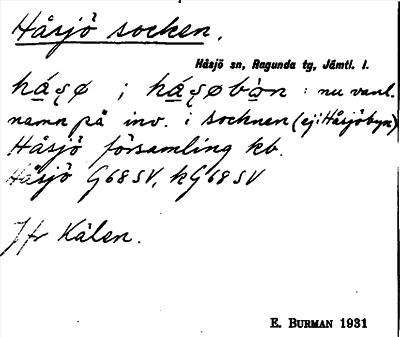 Håsjö socken.
Håsjö sn, Ragunda tg, Jämtl. l.
hå̱ʂø ; hå̱ʂøbòn : nu vanl.
namn på inv. i socknen (ej: Håsjöbyn)
Håsjö församling kb.
Håsjö G68SV, kG68SV
Jfr Kälen.
E. BURMAN 1931